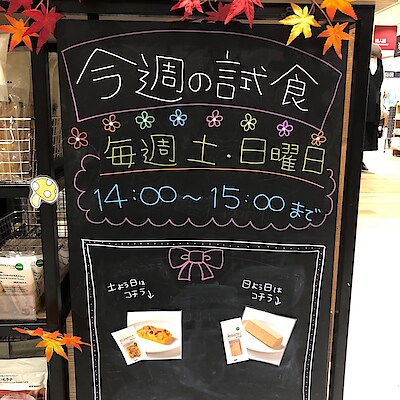 今週の試食
毎週 土・日曜日
14:00～15:00まで
土よう日は
コチラ↓
日よう日は
コチラ↓